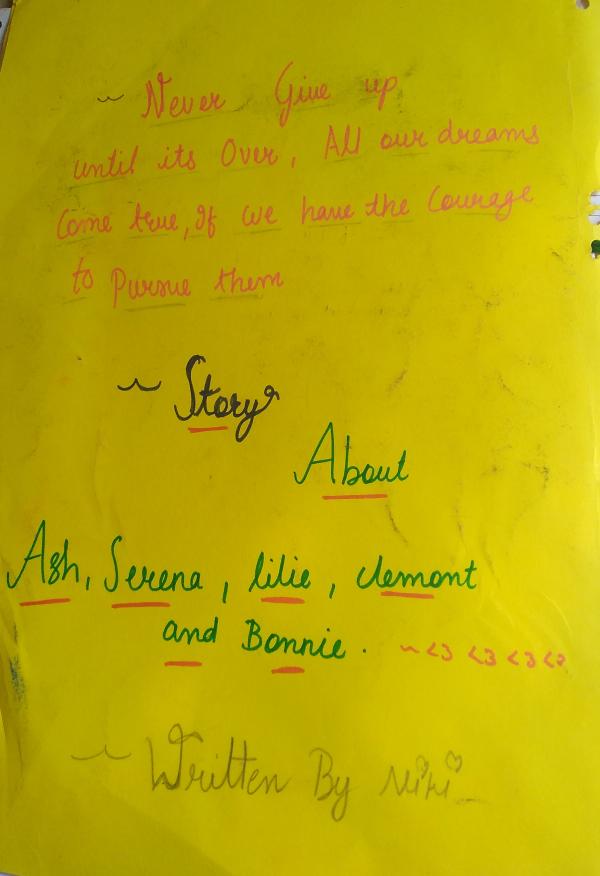 ~ Never Give up
until its Over, All our dreams
Come true, If we have the Courage
to Pursue them
~ Story
About
Ash, Serena, lilie, clemont
and Bonnie.
~<3 <3 <3 <3
~ Written By Niki_